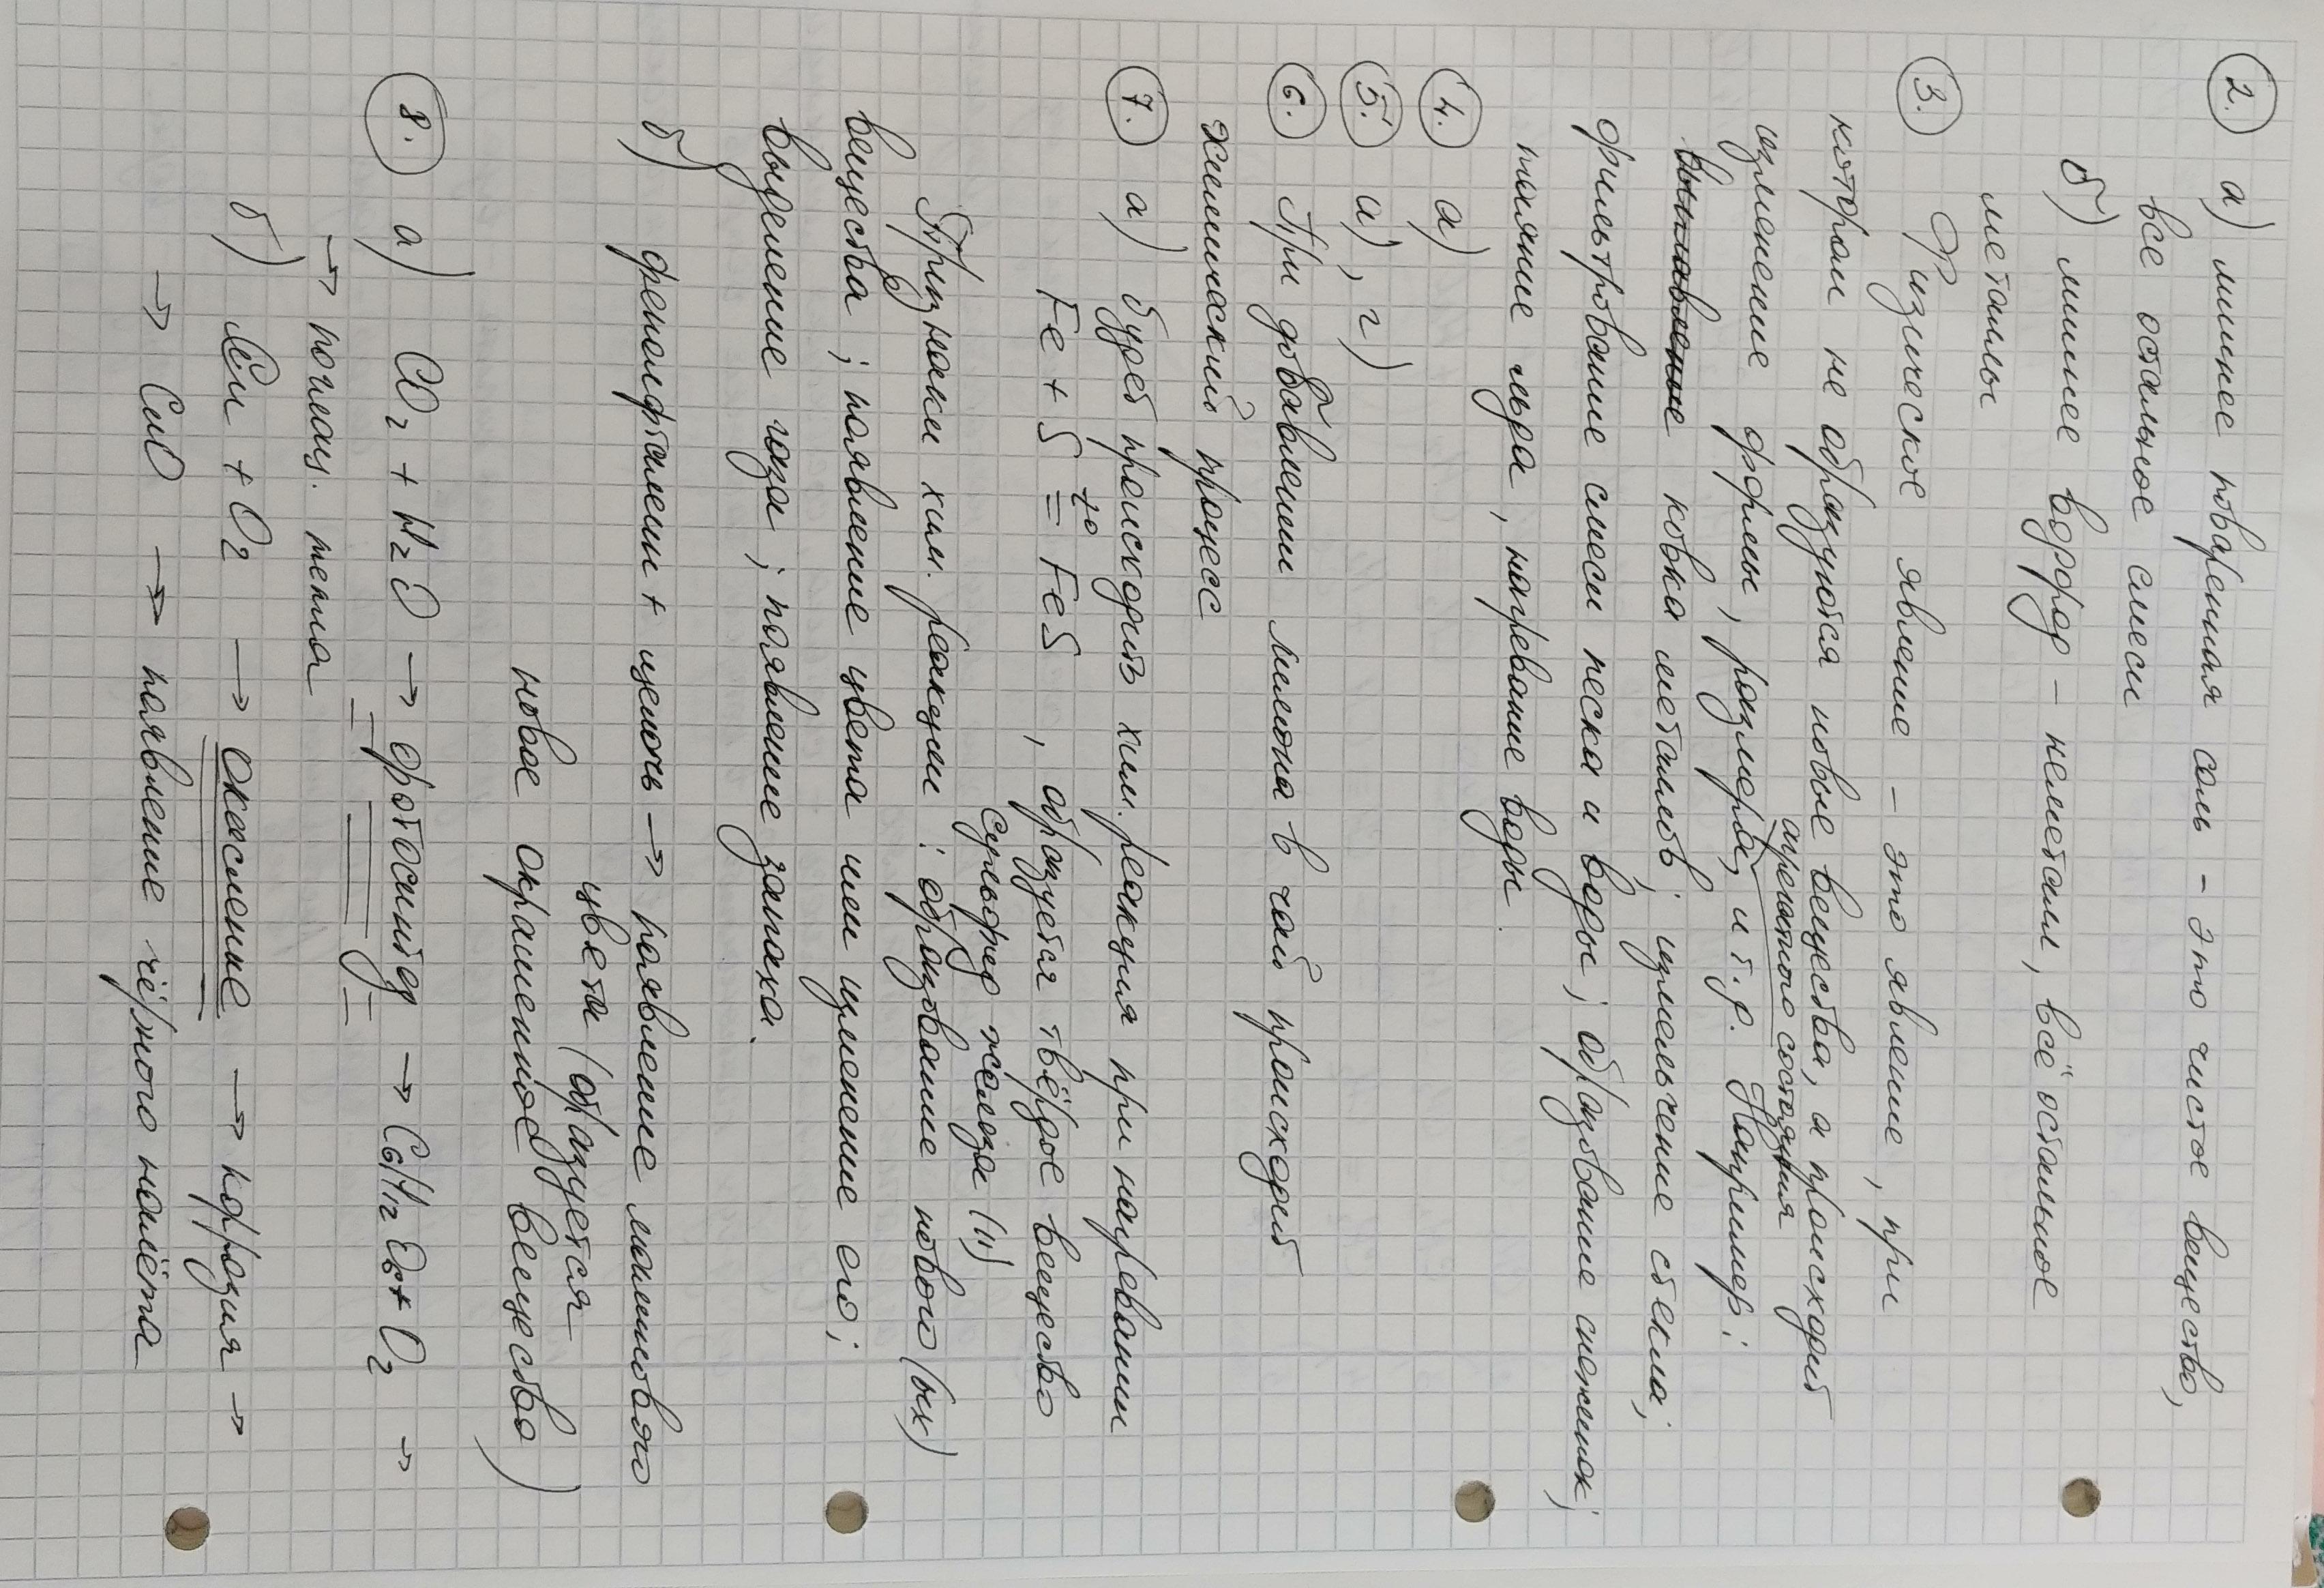 2. а) лишнее поваренная соль – это чистое вещество,
все остальное смеси
б) лишнее водород – неметалл, всё остальное
металлы
3. Физическое явление – это явление, при
котором не образуются новые вещества, а происходит
агрегатного состояния
изменение формы, размера, и т.д. Например:
ковка металлов; измельчение стекла;
фильтрование смеси песка и воды; образование снежинок;
таяние льда, нагревание воды.
4. а)
5. а), г)
6. При добавлении лимона в чай происходит
химический процесс
7. а) будет происходить хим. реакция при нагревании
Fe + S =^t° FeS, образуется твёрдое вещество
сульфид железа (II)
Признаки хим. реакции: образование нового (ых)
вещества; появление цвета или изменение его;
выделение газа; появление запаха.
б) фенолфталеин + щелочь → появление малинового
цвета (образуется
новое окрашенное вещество)
8. а) CO₂ + H₂O → фотосинтез → C₆H₁₂O₆ + O₂ →
→ поглощ. тепла
б) Cu + O₂ → окисление → коррозия →
→ CuO → появление чёрного налёта